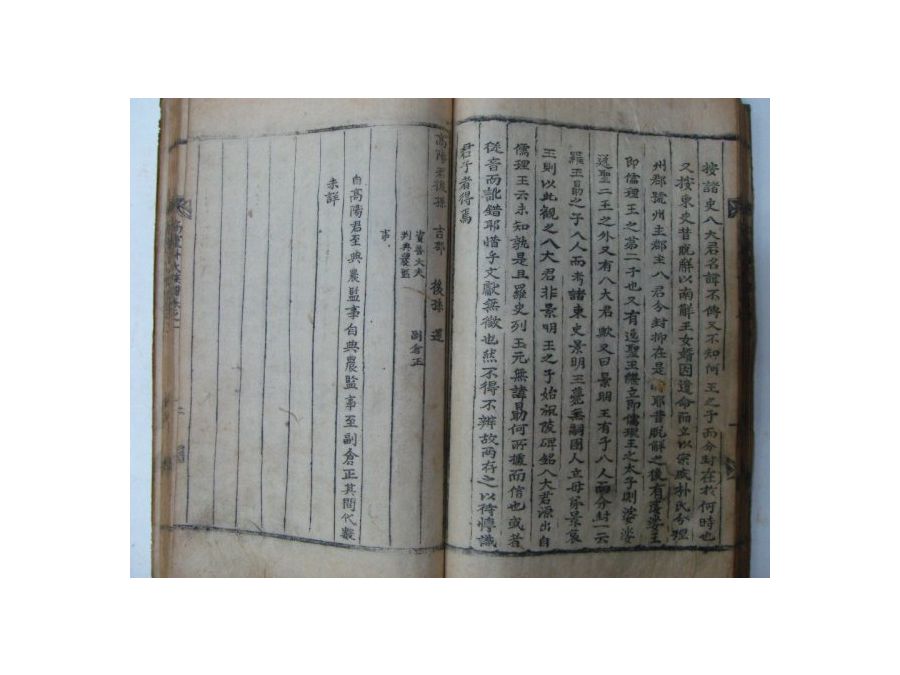 按諸史八大君名諱不傳又不知何王之子而分封在於何時也
又按東史昔脫解以南解王女婿因遺命而立以宗戚朴氏分理
州郡號州主郡主八君分封抑在是時耶昔脫解之後有婆娑王
即儒理王之第二子也又有逸聖王繼立即儒理王之太子則婆娑
逸聖二王之外又有八大君歟又曰景明王有子八人而分封一云
羅王昜之子八人而考諸東史景明王薨無嗣國人立母弟景哀
王則以此觀之八大君非景明王之子始祖陵碑銘八大君源出自
儒理王云未知孰是且羅史列王元無諱昜何所據而信也或者
從音而訛錯耶惜乎文獻無徵也然不得不辨故兩存之以待博識
君子者得焉
高陽君後孫 吉郡 後孫 運
資善大夫 副倉正
判典農監
事
自高陽君至典農監事自典農監事至副倉正其間代數
未詳